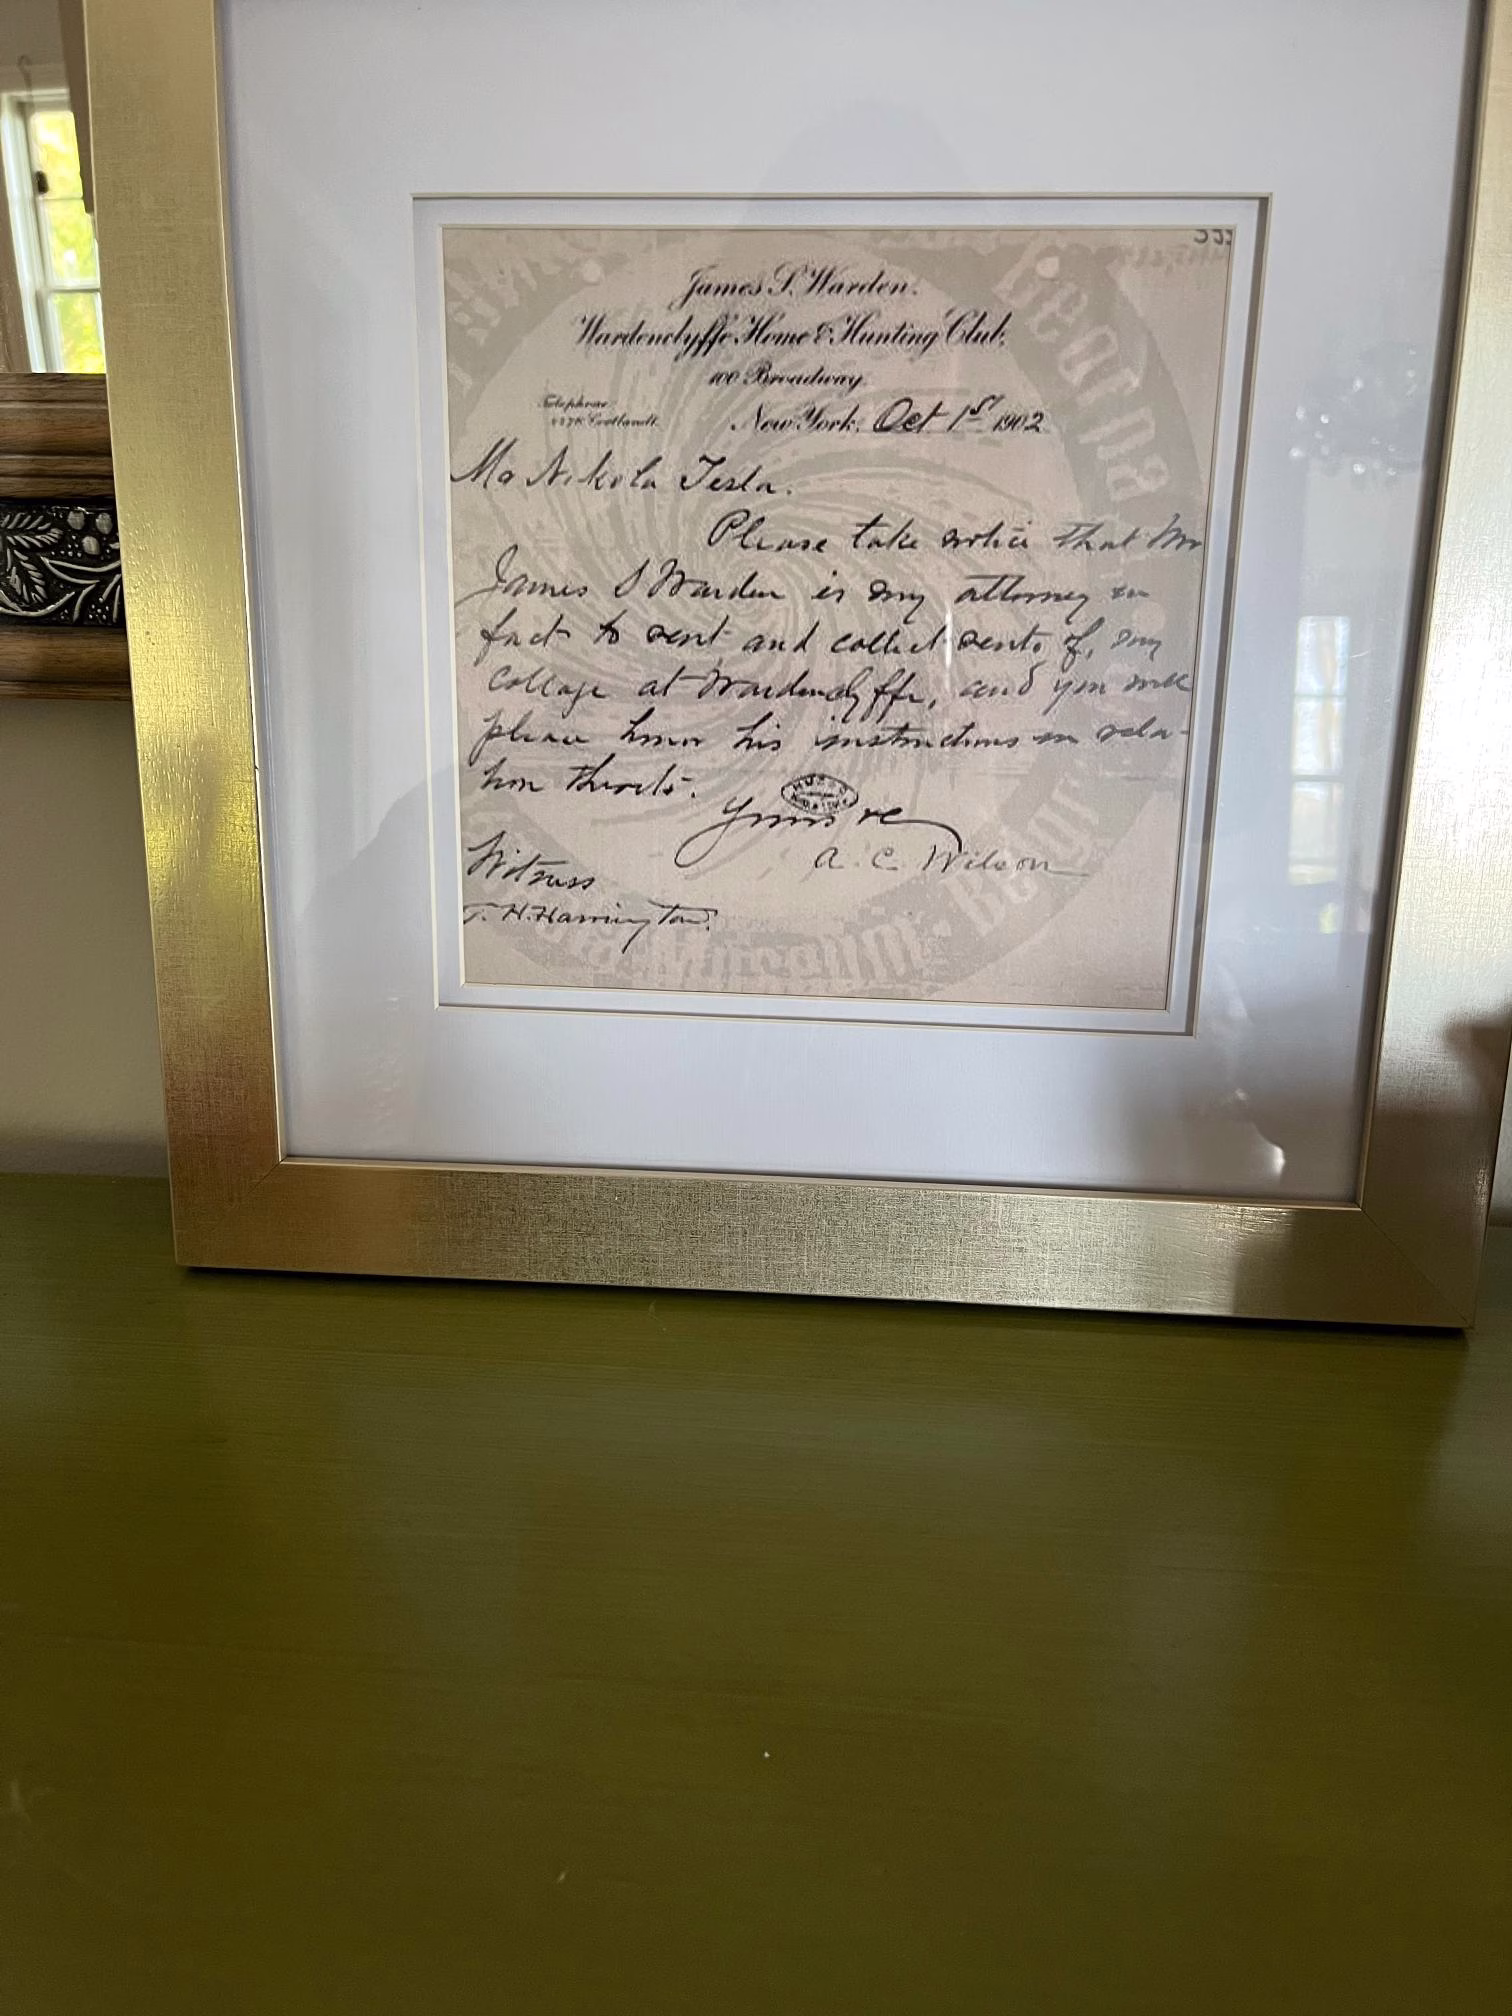 James S. Warden.
Wardenclyffe Home & Hunting Club,
100 Broadway.
Telephone
Cortlandt.
New York, Oct 1st 1902
Mr Nikola Tesla.
Please take notice that Mr
James S Warden is my attorney in
fact to rent and collect rents of, my
cottage at Wardenclyffe, and you will
please honor his instructions in rela-
tion thereto.
Yours re
A. C. Wilson
Witness
T. H. Harrington.